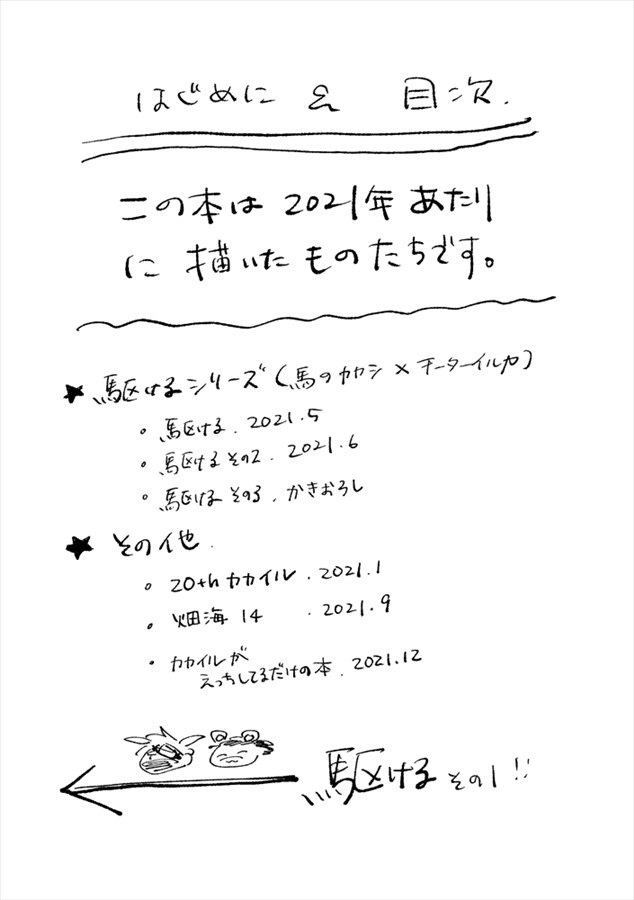 はじめに & 目次.
この本は 2021年 あたり
に 描いた ものたちです。
★ 駆ける シリーズ (馬のカカシ × チーターイルカ)
・ 駆ける. 2021.5
・ 駆ける その2. 2021.6
・ 駆ける その3. かきおろし
★ その他.
・ 20th カカイル. 2021.1
・ 畑海 14 . 2021.9
・ カカイルが
えっちしてるだけの本. 2021.12
駆ける その1!!